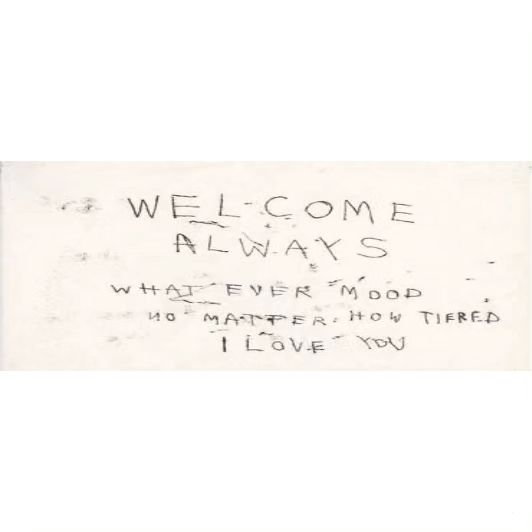 WELCOME
ALWAYS
WHAT EVER MOOD
NO MATTER HOW TIERED
I LOVE YOU